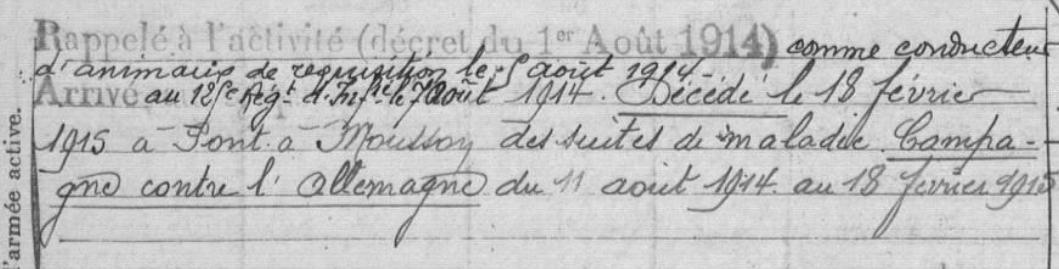 Rappelé à l'activité (décret du 1er Août 1914) comme conducteur
d'animaux de requisition le 5 août 1914
Arrivé au 125e Régt d'Infie le 7 Août 1914. Décédé le 18 février
1915 à Pont-à Mousson des suites de maladie. Campa-
gne contre l'Allemagne du 11 août 1914 au 18 février 1915
l'armée active.